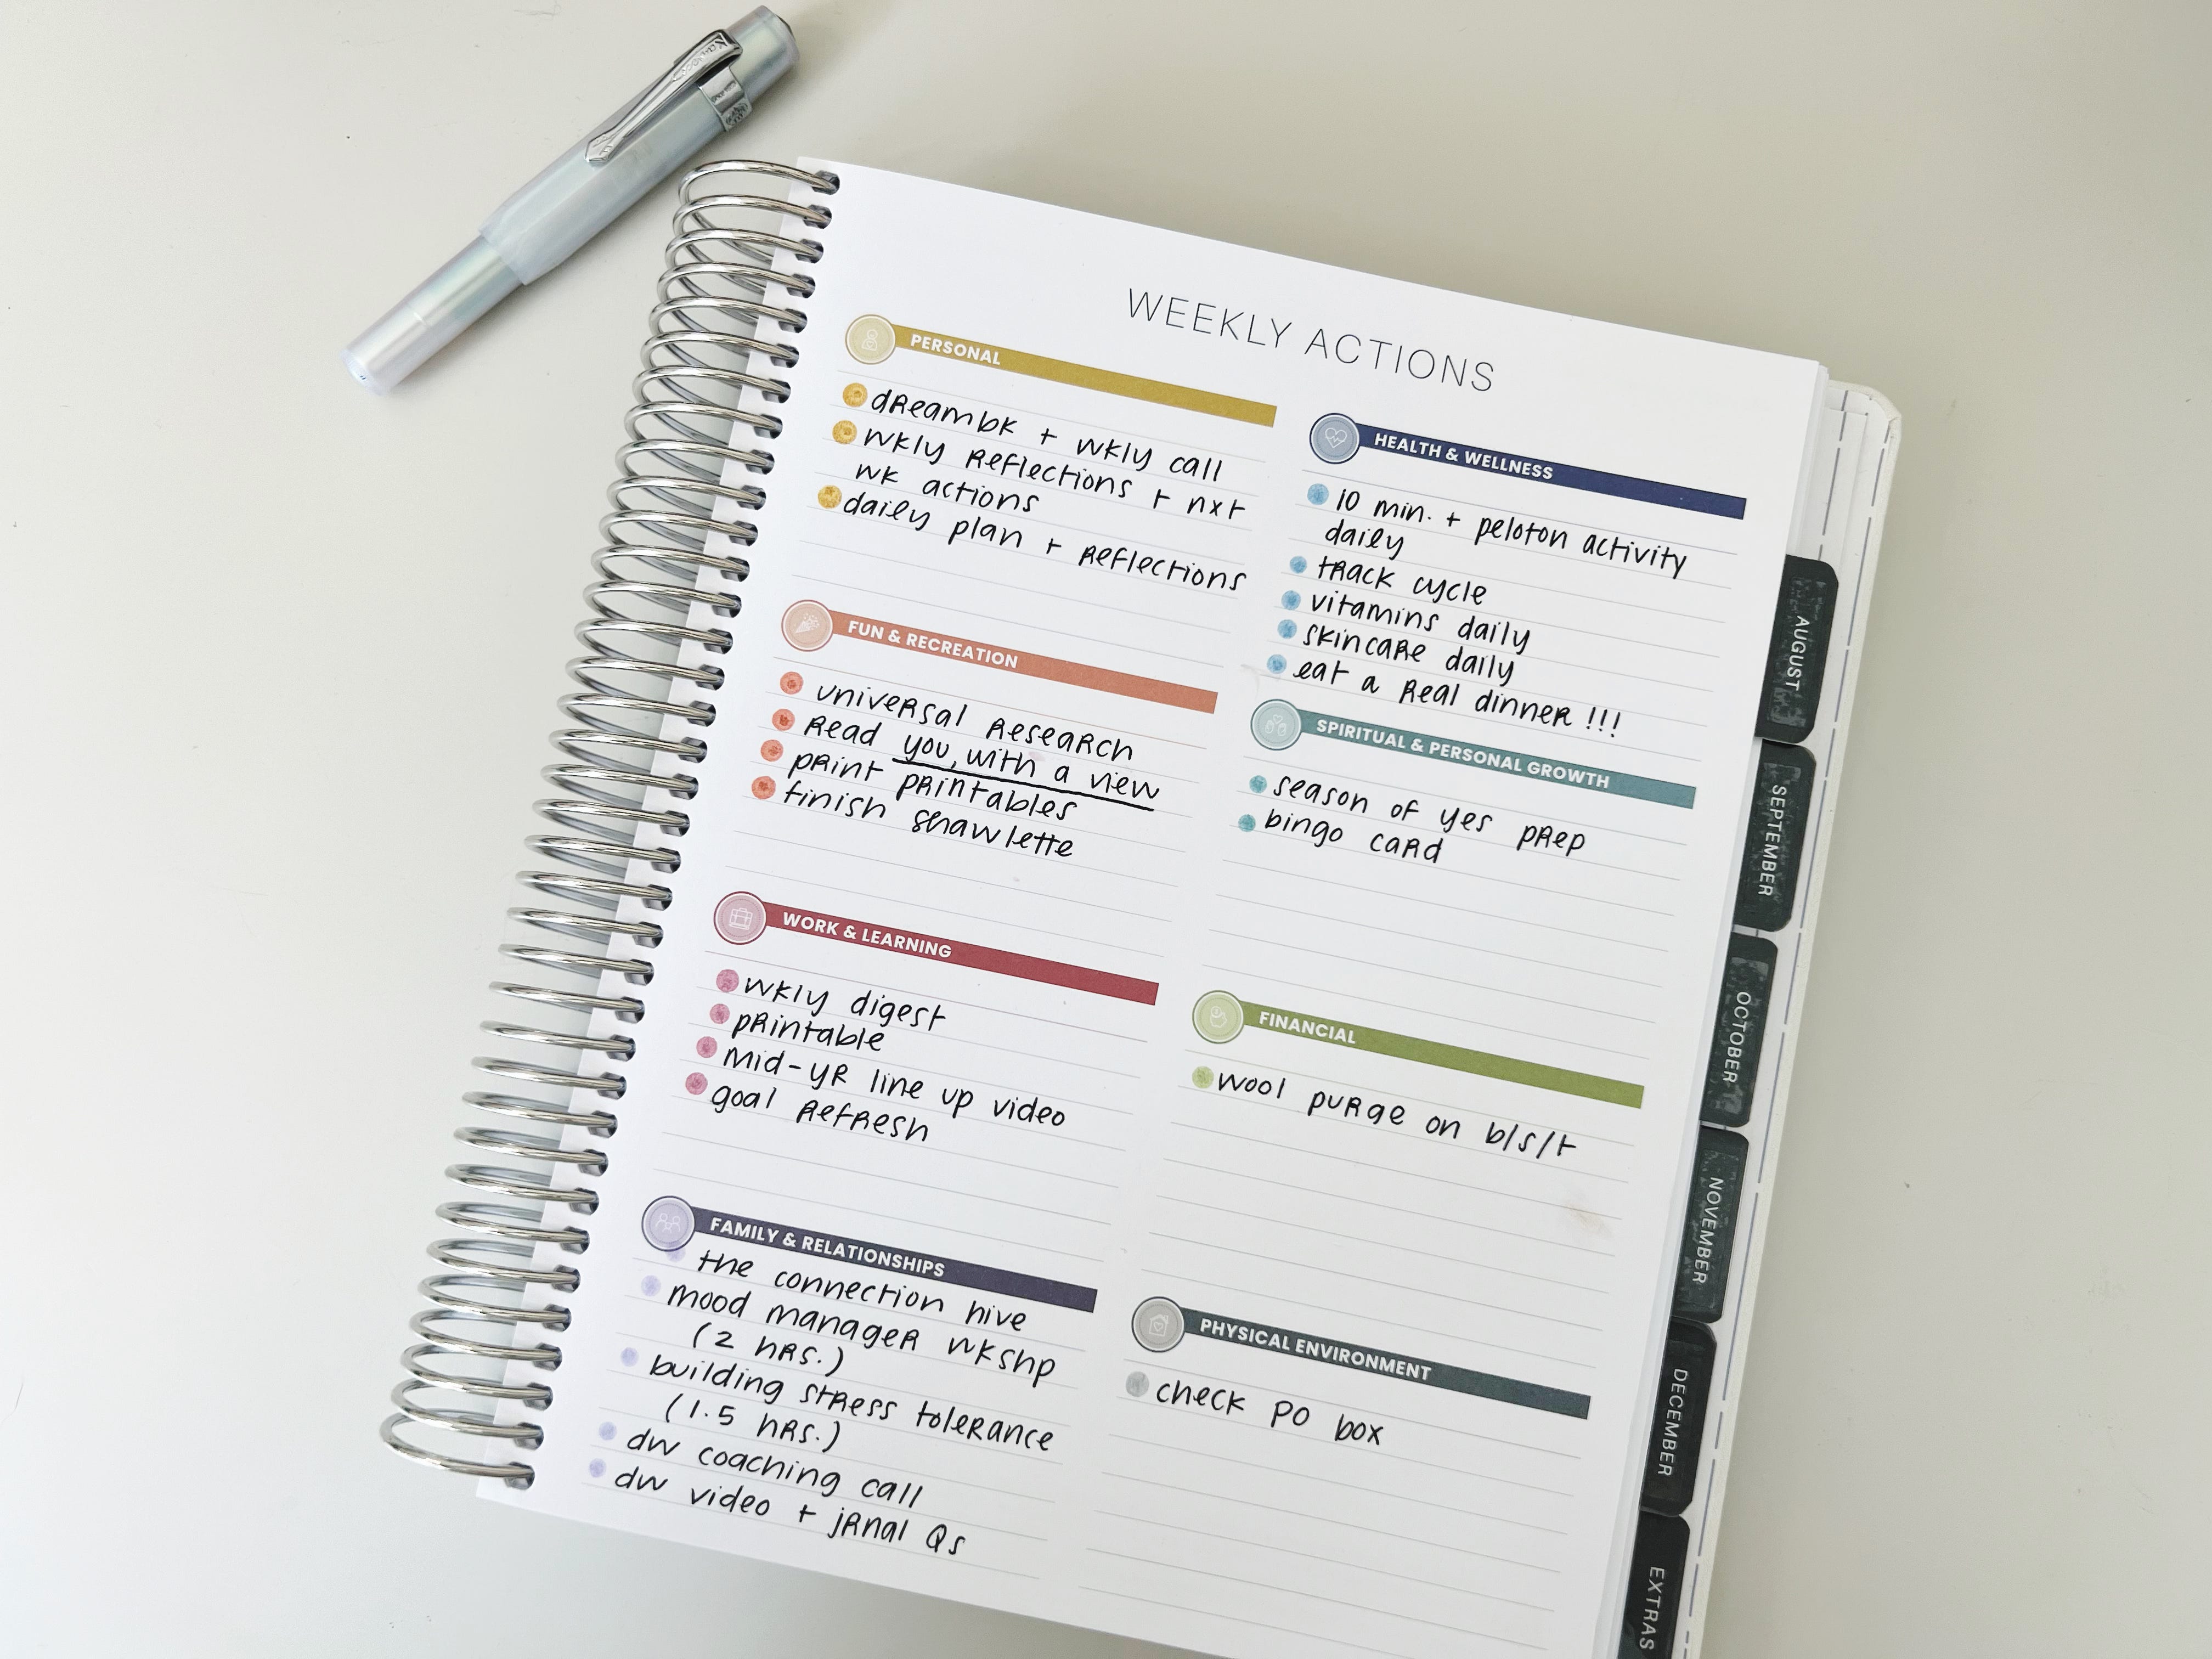 WEEKLY ACTIONS
PERSONAL
dreambk + wkly call
wkly reflections + nxt
wk actions
daily plan + reflections
FUN & RECREATION
universal research
read you, with a view
print printables
finish shawlette
WORK & LEARNING
wkly digest
printable
mid-yr line up video
goal refresh
FAMILY & RELATIONSHIPS
the connection hive
mood manager wkshp
(2 hrs.)
building stress tolerance
(1.5 hrs.)
dw coaching call
dw video + jrnal Qs
HEALTH & WELLNESS
10 min. + peloton activity
daily
track cycle
vitamins daily
skincare daily
eat a real dinner!!!
SPIRITUAL & PERSONAL GROWTH
season of yes prep
bingo card
FINANCIAL
wool purge on b/s/t
PHYSICAL ENVIRONMENT
check PO box
AUGUST
SEPTEMBER
OCTOBER
NOVEMBER
DECEMBER
EXTRAS